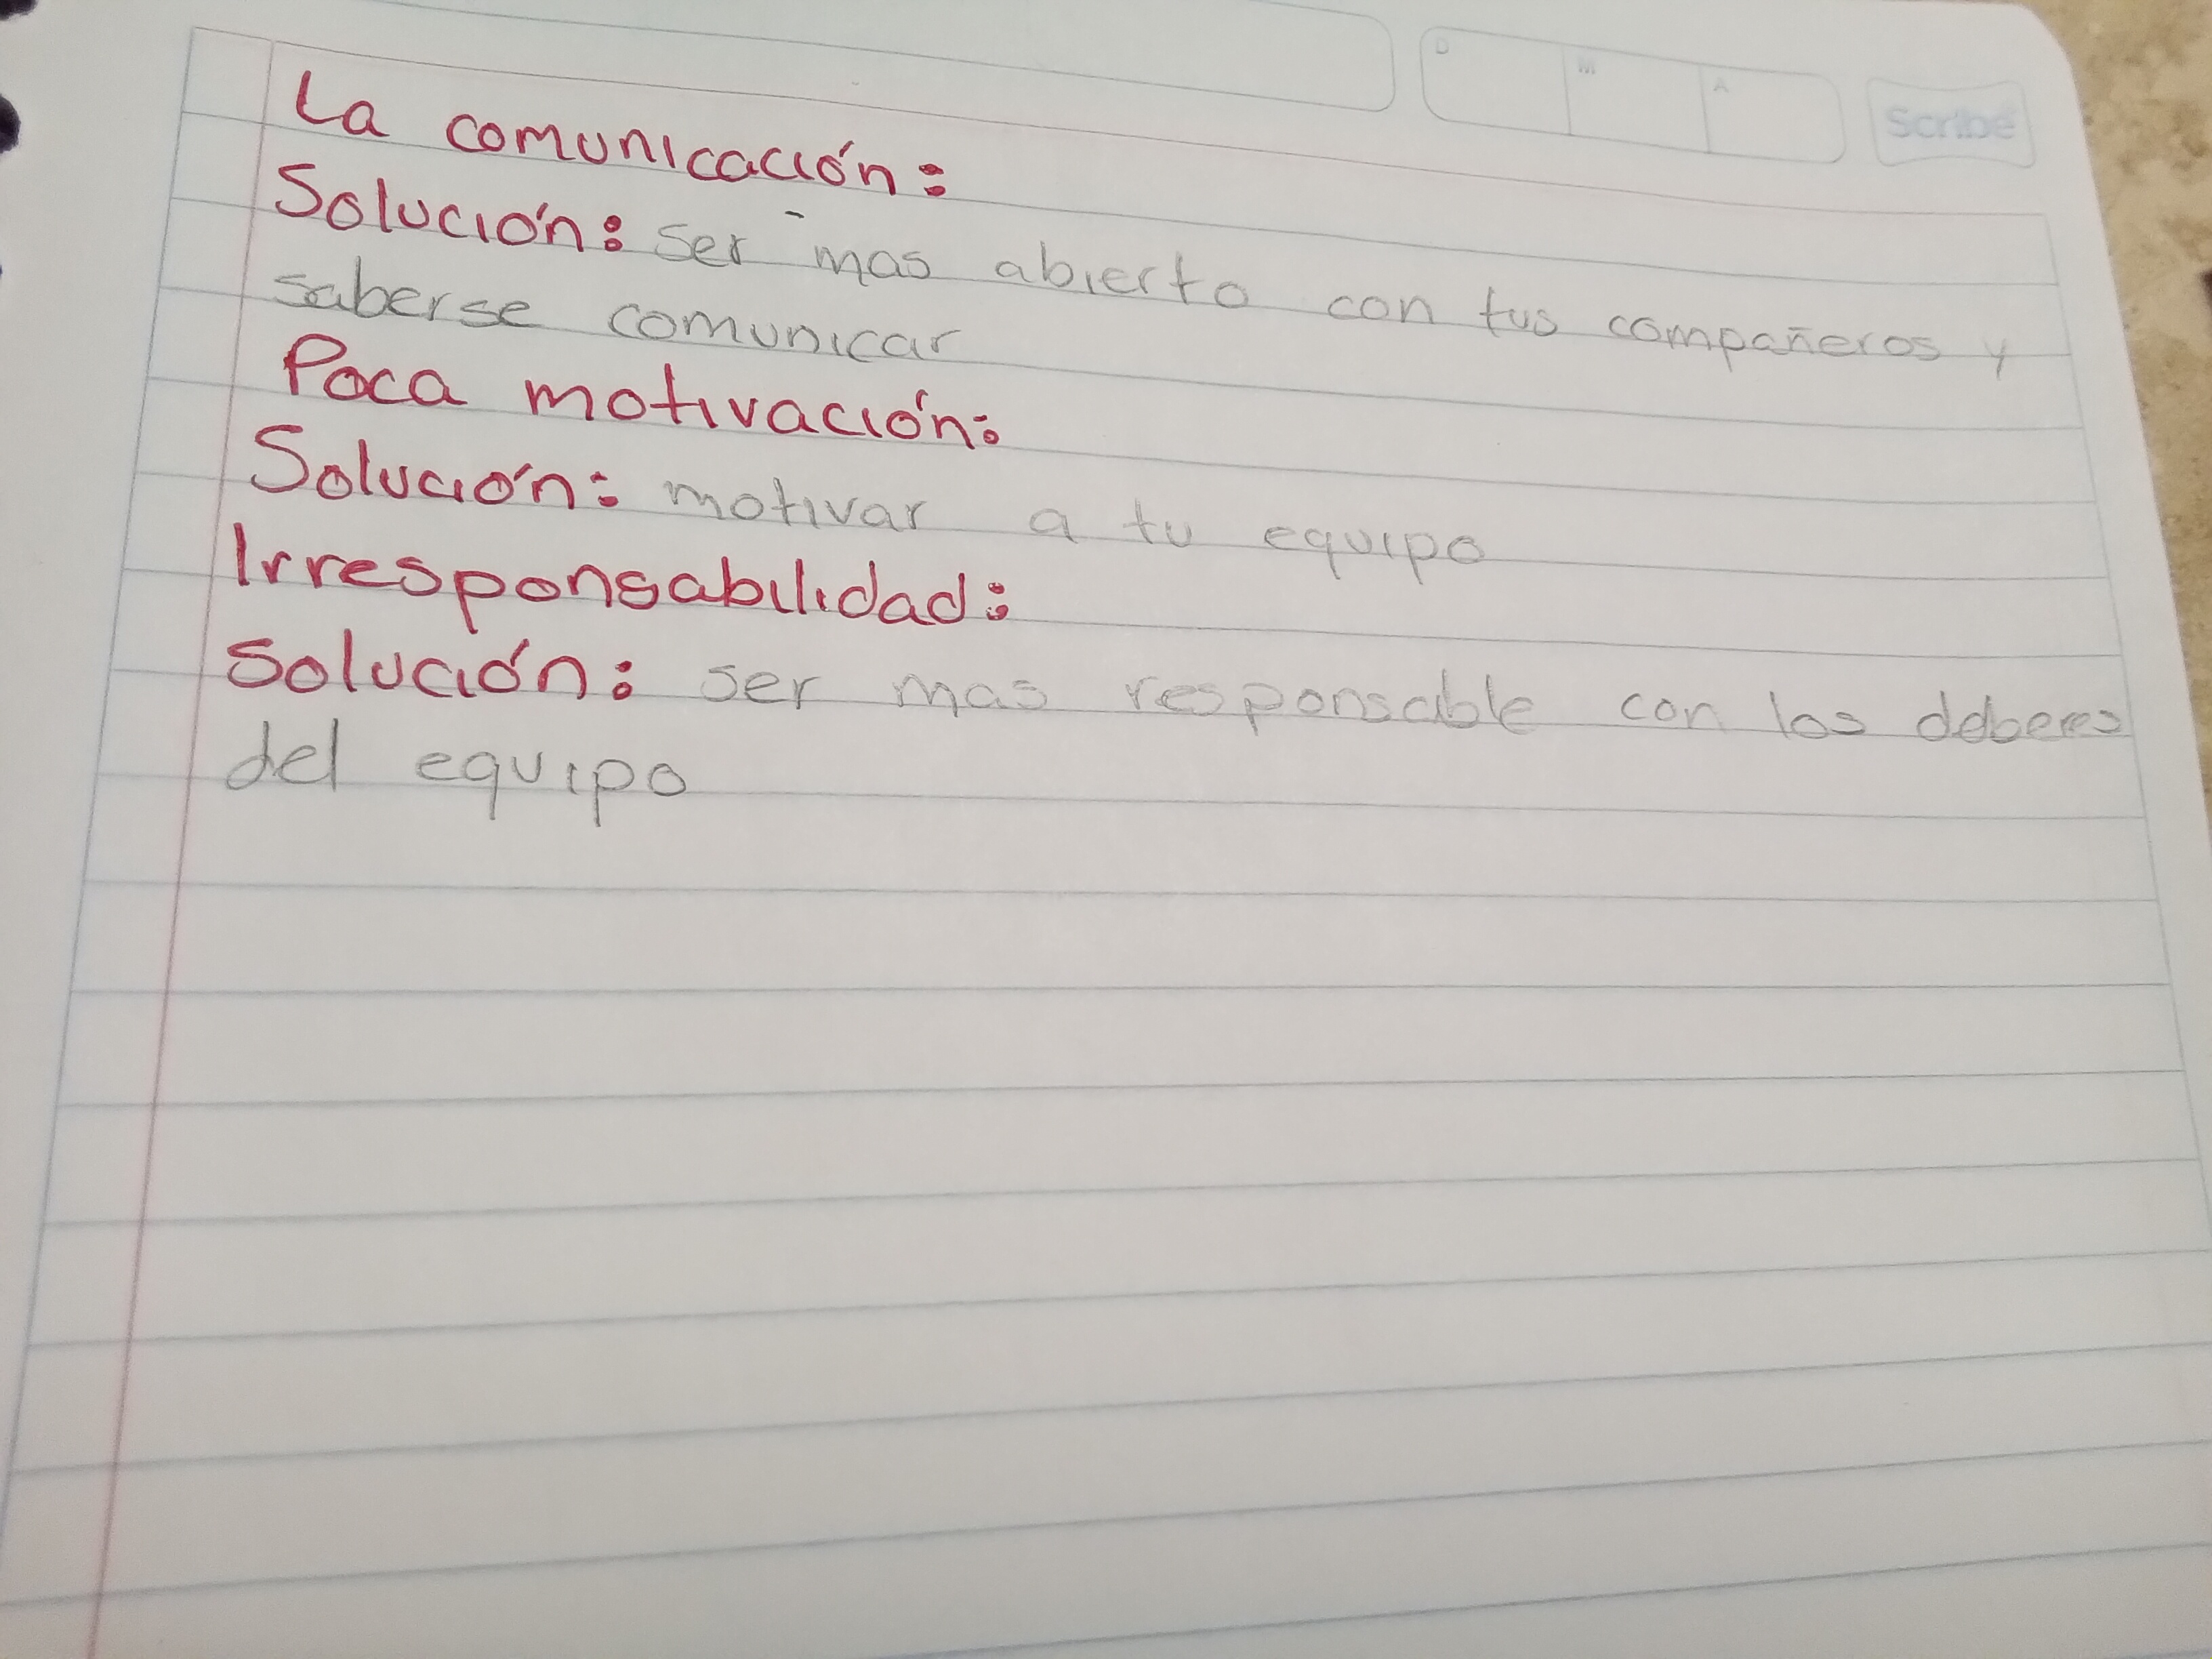 D M A Scribe
La comunicación:
Solución: ser mas abierto con tus compañeros y
saberse comunicar
Poca motivación:
Solución: motivar a tu equipo
Irresponsabilidad:
Solución: ser mas responsable con los deberes
del equipo